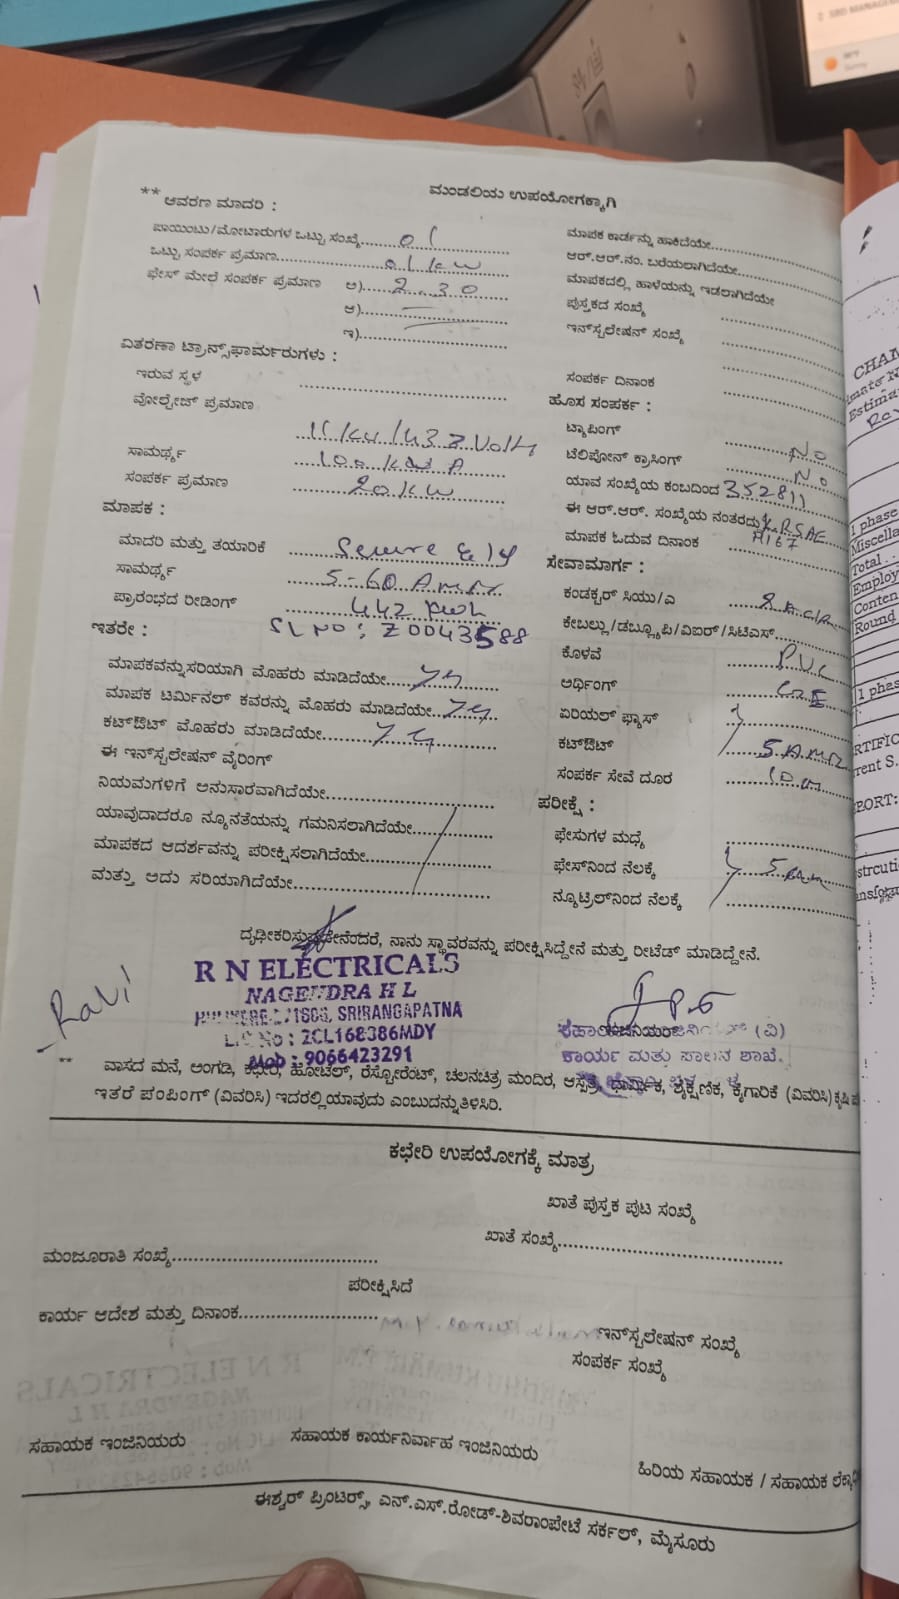 SRD MANAGEM
Sunny
ಮಂಡಲಿಯ ಉಪಯೋಗಕ್ಕಾಗಿ
** ಆವರಣ ಮಾದರಿ :
ಪಾಯಿಂಟು/ಮೋಟಾರುಗಳ ಒಟ್ಟು ಸಂಖ್ಯೆ 01
ಒಟ್ಟು ಸಂಪರ್ಕ ಪ್ರಮಾಣ 01 KW
ಫೇಸ್ ಮೇಲೆ ಸಂಪರ್ಕ ಪ್ರಮಾಣ ಅ) 2.30
ಆ)
ಇ)
ವಿತರಣಾ ಟ್ರಾನ್ಸ್‌ಫಾರ್ಮರುಗಳು :
ಇರುವ ಸ್ಥಳ
ವೋಲ್ಟೇಜ್ ಪ್ರಮಾಣ 11/KV/433 Volts
ಸಾಮರ್ಥ್ಯ
ಸಂಪರ್ಕ ಪ್ರಮಾಣ 20 KW
ಮಾಪಕ :
ಮಾದರಿ ಮತ್ತು ತಯಾರಿಕೆ Secure
ಸಾಮರ್ಥ್ಯ 5-60 Amps
ಪ್ರಾರಂಭದ ರೀಡಿಂಗ್ 442 KWh
SL NO: Z0043588
ಇತರೇ :
ಮಾಪಕವನ್ನು ಸರಿಯಾಗಿ ಮೊಹರು ಮಾಡಿದೆಯೇ
ಮಾಪಕ ಟರ್ಮಿನಲ್ ಕವರನ್ನು ಮೊಹರು ಮಾಡಿದೆಯೇ
ಕಟ್‌ಔಟ್ ಮೊಹರು ಮಾಡಿದೆಯೇ
ಈ ಇನ್‌ಸ್ಟಲೇಷನ್ ವೈರಿಂಗ್
ನಿಯಮಗಳಿಗೆ ಅನುಸಾರವಾಗಿದೆಯೇ
ಯಾವುದಾದರೂ ನ್ಯೂನತೆಯನ್ನು ಗಮನಿಸಲಾಗಿದೆಯೇ
ಮಾಪಕದ ಆದರ್ಶವನ್ನು ಪರೀಕ್ಷಿಸಲಾಗಿದೆಯೇ
ಮತ್ತು ಅದು ಸರಿಯಾಗಿದೆಯೇ
ಮಾಪಕ ಕಾರ್ಡನ್ನು ಹಾಕಿದೆಯೇ
ಆರ್.ಆರ್.ನಂ. ಬರೆಯಲಾಗಿದೆಯೇ
ಮಾಪಕದಲ್ಲಿ ಹಾಳೆಯನ್ನು ಇಡಲಾಗಿದೆಯೇ
ಪುಸ್ತಕದ ಸಂಖ್ಯೆ
ಇನ್‌ಸ್ಟಲೇಷನ್ ಸಂಖ್ಯೆ
ಸಂಪರ್ಕ ದಿನಾಂಕ
ಹೊಸ ಸಂಪರ್ಕ :
ಟ್ಯಾಪಿಂಗ್ No
ಟೆಲಿಪೋನ್ ಕ್ರಾಸಿಂಗ್ No
ಯಾವ ಸಂಖ್ಯೆಯ ಕಂಬದಿಂದ 352811
ಈ ಆರ್.ಆರ್. ಸಂಖ್ಯೆಯ ನಂತರದ್ದು KRSAE
H167
ಮಾಪಕ ಓದುವ ದಿನಾಂಕ
ಸೇವಾಮಾರ್ಗ :
ಕಂಡಕ್ಟರ್ ಸಿಯು/ಎ
ಕೇಬಲ್ಲು/ಡಬ್ಲ್ಯೂಪಿ/ವಿಐರ್/ಸಿಟಿಎಸ್
ಕೊಳವೆ PVC
ಅರ್ಥಿಂಗ್
ಏರಿಯಲ್ ಫ್ಯೂಸ್
ಕಟ್‌ಔಟ್ 5 Amp
ಸಂಪರ್ಕ ಸೇವೆ ದೂರ 10 m
ಪರೀಕ್ಷೆ :
ಫೇಸುಗಳ ಮಧ್ಯೆ
ಫೇಸ್‌ನಿಂದ ನೆಲಕ್ಕೆ
ನ್ಯೂಟ್ರಿಲ್‌ನಿಂದ ನೆಲಕ್ಕೆ
ದೃಢೀಕರಿಸುತ್ತೇನೇನೆಂದರೆ, ನಾನು ಸ್ಥಾವರವನ್ನು ಪರೀಕ್ಷಿಸಿದ್ದೇನೆ ಮತ್ತು ರೀಟೆಡ್ ಮಾಡಿದ್ದೇನೆ.
Ravi
R N ELECTRICALS
NAGENDRA H L
SRIRANGAPATNA
LIC No : 2CL168386MDY
Mob : 9066423291
ಸಹಾಯಕ ಇಂಜಿನಿಯರ್ (ವಿ)
ಕಾರ್ಯ ಮತ್ತು ಪಾಲನ ಶಾಖೆ.
** ವಾಸದ ಮನೆ, ಅಂಗಡಿ, ಕಛೇರಿ, ಹೋಟೆಲ್, ರೆಸ್ಟೋರೆಂಟ್, ಚಲನಚಿತ್ರ ಮಂದಿರ, ಆಸ್ಪತ್ರೆ, ಧಾರ್ಮಿಕ, ಶೈಕ್ಷಣಿಕ, ಕೈಗಾರಿಕೆ (ವಿವರಿಸಿ) ಕೃಷಿ
ಇತರೆ ಪಂಪಿಂಗ್ (ವಿವರಿಸಿ) ಇದರಲ್ಲಿಯಾವುದು ಎಂಬುದನ್ನು ತಿಳಿಸಿರಿ.
ಕಛೇರಿ ಉಪಯೋಗಕ್ಕೆ ಮಾತ್ರ
ಖಾತೆ ಪುಸ್ತಕ ಪುಟ ಸಂಖ್ಯೆ
ಖಾತೆ ಸಂಖ್ಯೆ
ಮಂಜೂರಾತಿ ಸಂಖ್ಯೆ
ಪರೀಕ್ಷಿಸಿದೆ
ಕಾರ್ಯ ಆದೇಶ ಮತ್ತು ದಿನಾಂಕ
ಇನ್‌ಸ್ಟಲೇಷನ್ ಸಂಖ್ಯೆ
ಸಂಪರ್ಕ ಸಂಖ್ಯೆ
ಸಹಾಯಕ ಇಂಜಿನಿಯರು
ಸಹಾಯಕ ಕಾರ್ಯನಿರ್ವಾಹ ಇಂಜಿನಿಯರು
ಹಿರಿಯ ಸಹಾಯಕ / ಸಹಾಯಕ
ಈಶ್ವರ್ ಪ್ರಿಂಟರ್ಸ್, ಎನ್.ಎಸ್.ರೋಡ್-ಶಿವರಾಂಪೇಟೆ ಸರ್ಕಲ್, ಮೈಸೂರು
CHAM
Estima
1 phase
Miscella
Total
Employ
Conten
Round
1 phas
RTIFIC
rent S.
PORT:
strcuti